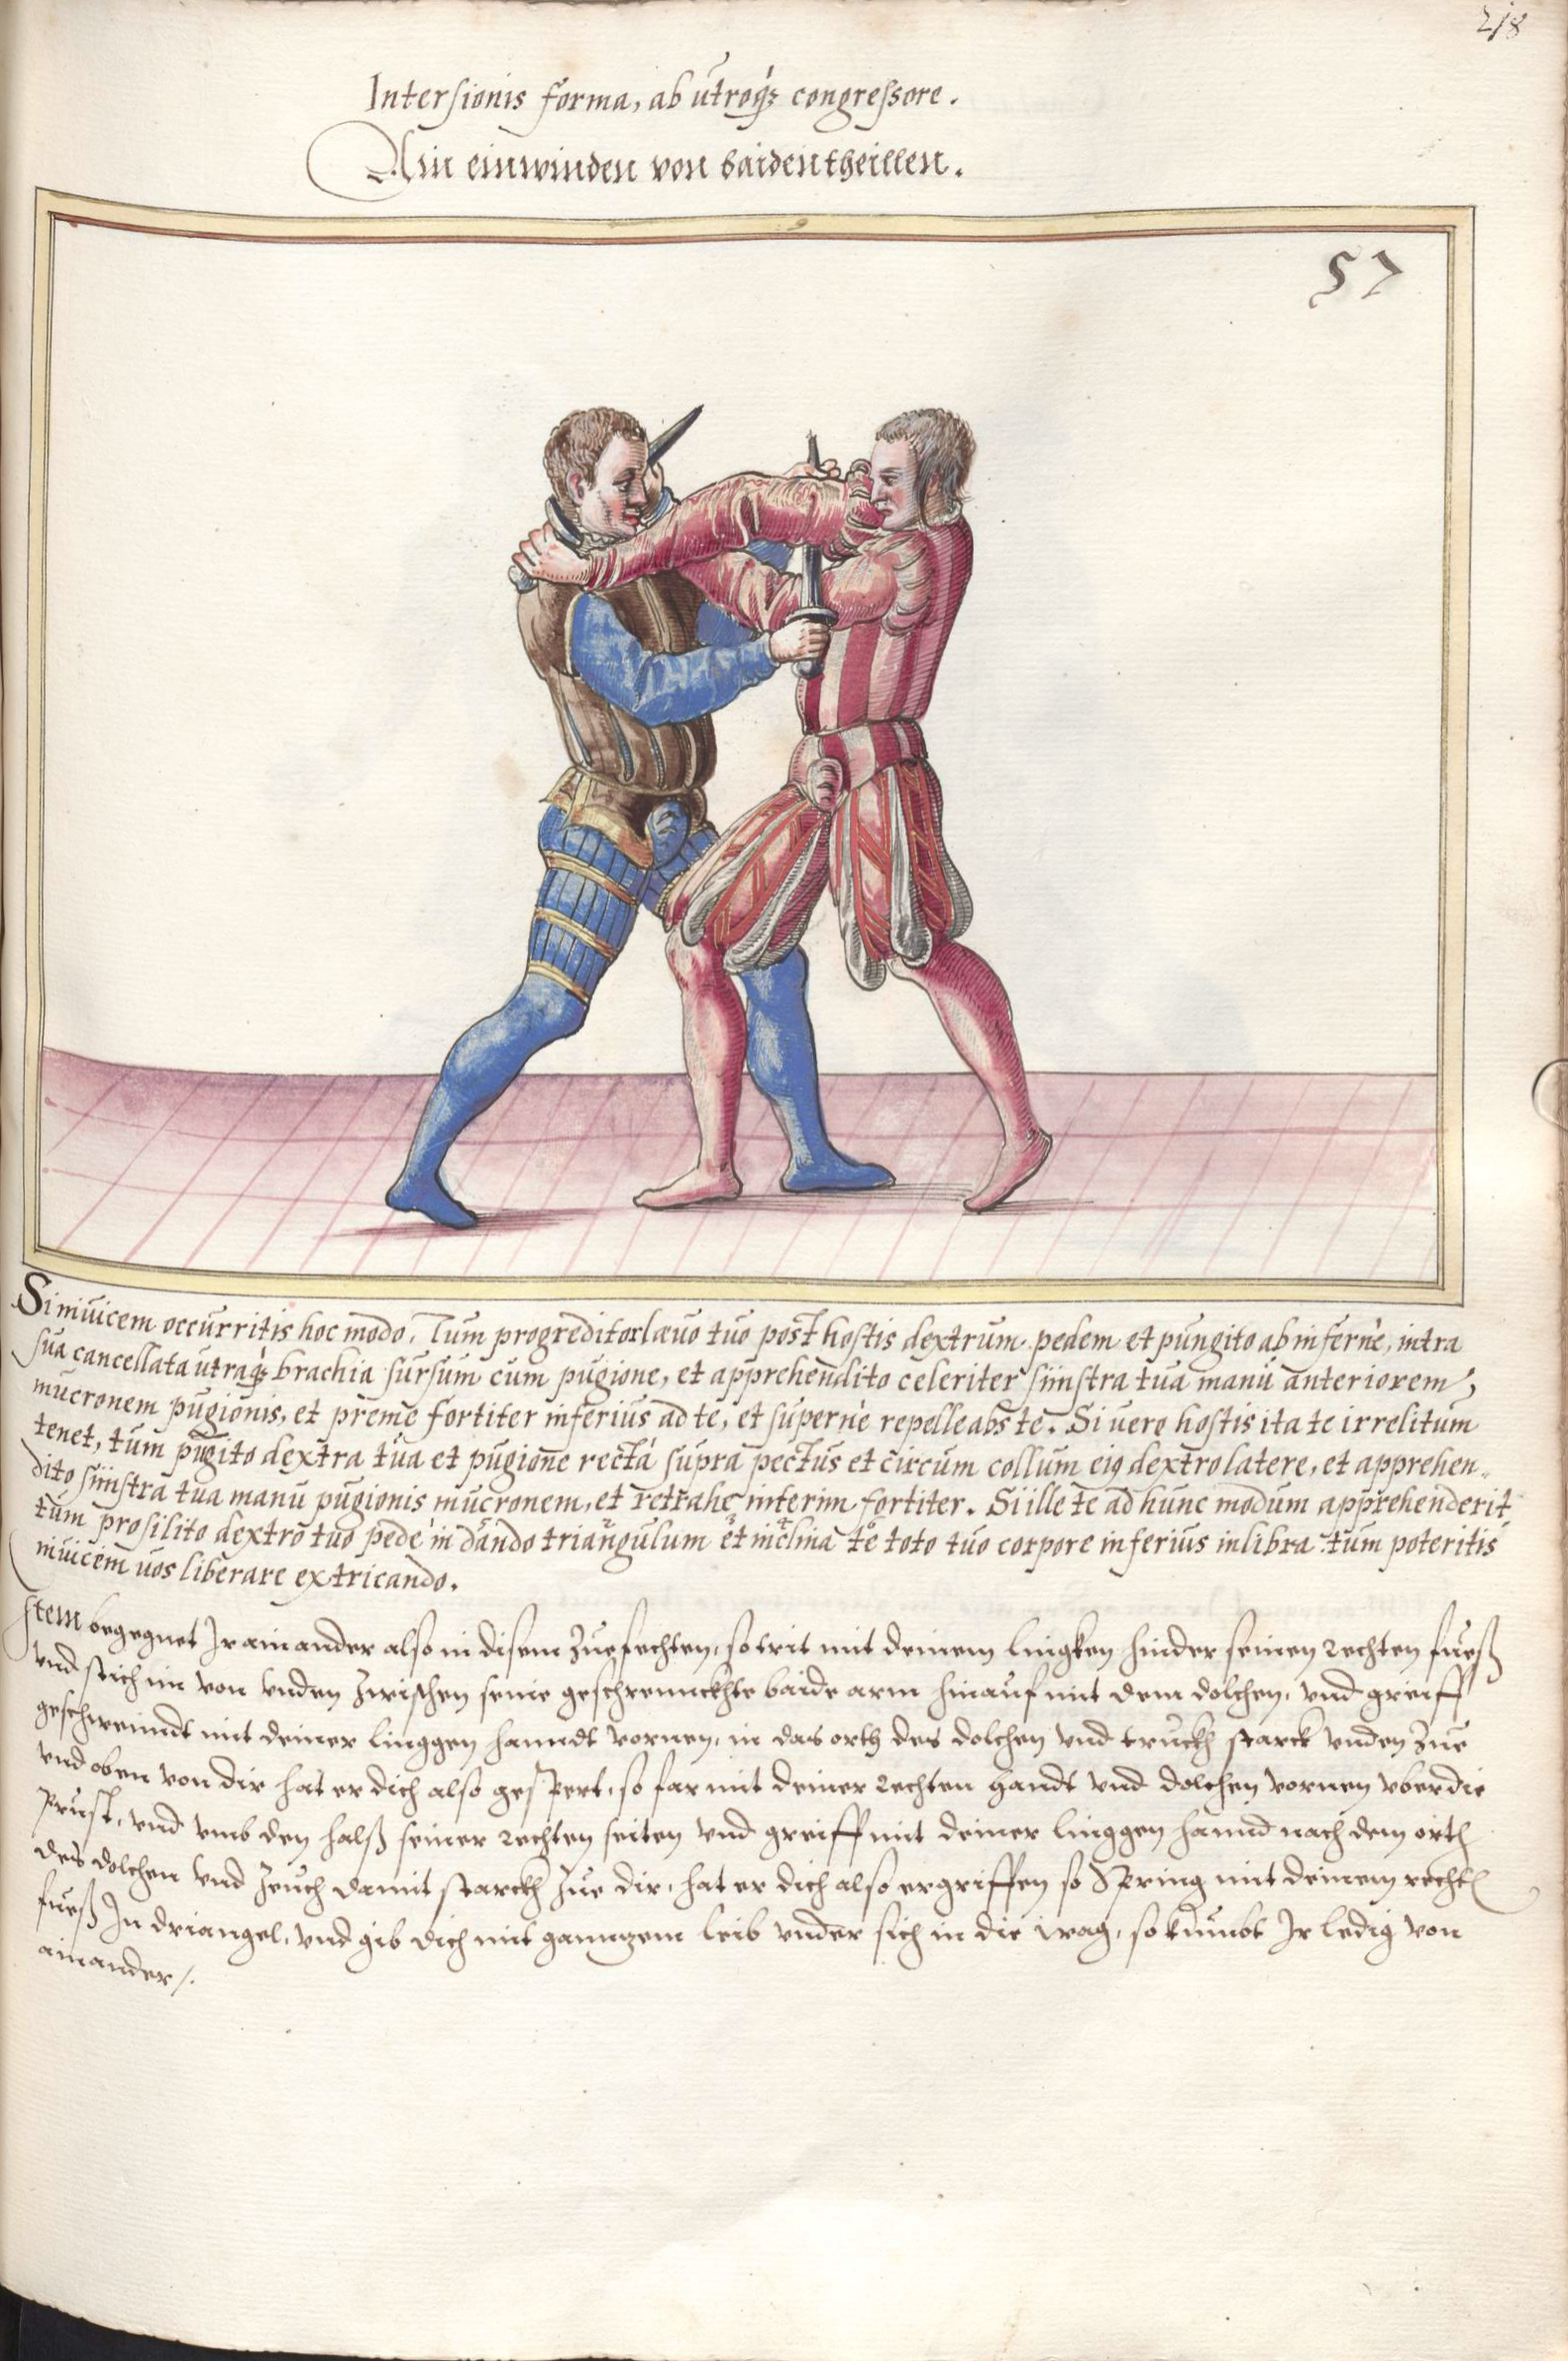 218
Intersionis forma, ab utroq́ꝫ congressore.
Ain einwinden von baiden theillen.
57
Si inuicem occurritis hoc modo, Tum progreditor læuo tuo post hostis dextrum pedem et pungito ab infernè, intra
sua cancellata utraq́ꝫ brachia sursum cum pugione, et apprehendito celeriter siinstra tua manu anteriorem,
mucronem pugionis, et preme fortiter inferius ad te, et supernè repelle abs te. Si uero hostis ita te irrelitum
tenet, tum pugito dextra tua et pugione rectà supra pectus et circum collum eiꝯ dextro latere, et apprehen-
dito siinstra tua manu pugionis mucronem, et retrahe interim fortiter. Si ille te ad hunc modum apprehenderit,
tum prosilito dextro tuo pede in dando triangulum et inclina te toto tuo corpore inferius in libra tum poteritis
inuicem uos liberare extricando.
Item begegnet Ir ainander also in disem zuefechten, so trit mit deinem lingken hinder seinen rechten fueß
vnd stich im von vnden zwischen seine geschrennckhte baide arm hinauf mit dem dolchen, vnd greiff
geschwinndt mit deiner linggen hanndt vornen, in das orth des dolchen vnd truckh starck vnden zue
vnd oben von dir hat er dich also gespert, so far mit deiner rechten handt vnd dolchen vornen vber die
prust, vnd vmb den halß seiner rechten seiten vnd greiff mit deiner linggen hannd nach dem orth
des dolchen vnd zeuch damit starckh zue dir, hat er dich also ergriffen so spring mit deinem rechtn
fueß In driangel, vnd gib dich mit ganntzem leib vnder sich in die wag, so kumbt Ir ledig von
ainander /.